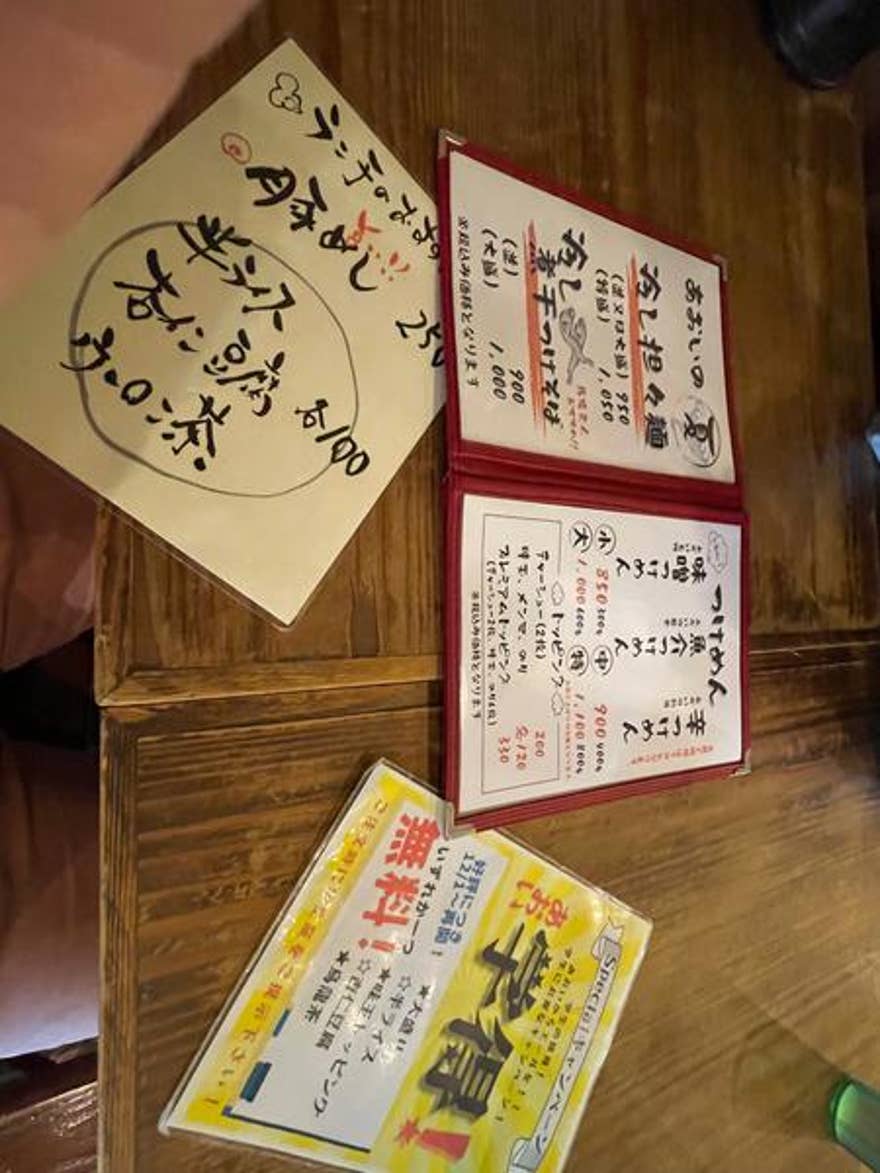 あおいの夏
冷し担々麺
(並又は大盛) 950
(特盛) 1,050
冷し煮干つけそば
(並) 900
(大盛) 1,000
※税込み価格となります
つけめん
味噌つけめん
魚介つけめん
辛つけめん
小 850 300g 中 900 400g
大 1,000 600g 特 1,100 800g
トッピング
チャーシュー(2枚) 200
味玉、メンマ、のり 各120
プレミアムトッピング 330
※税込み価格となります
ランチのおすすめ
豚めし
250
半ライス
杏仁豆腐
ウーロン茶
各100
Specialキャンペーン
あおい
学得!
好評につき
12/1~再開!
いずれか一つ
無料!
★大盛り
☆半ライス
★味玉トッピング
☆杏仁豆腐
★烏龍茶